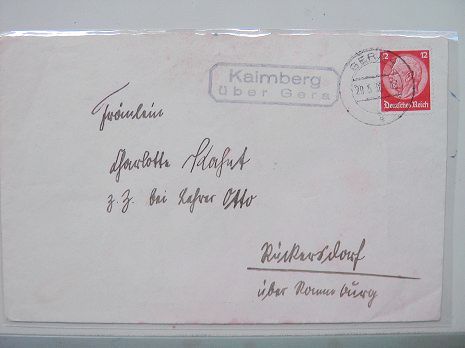 Kaimberg
über Gera
GERA
20.5.
12 12
Deutsches Reich
Fräulein
Charlotte Kahnt
z. Z. bei Lehrer Otto
Rückersdorf
über Ronneburg